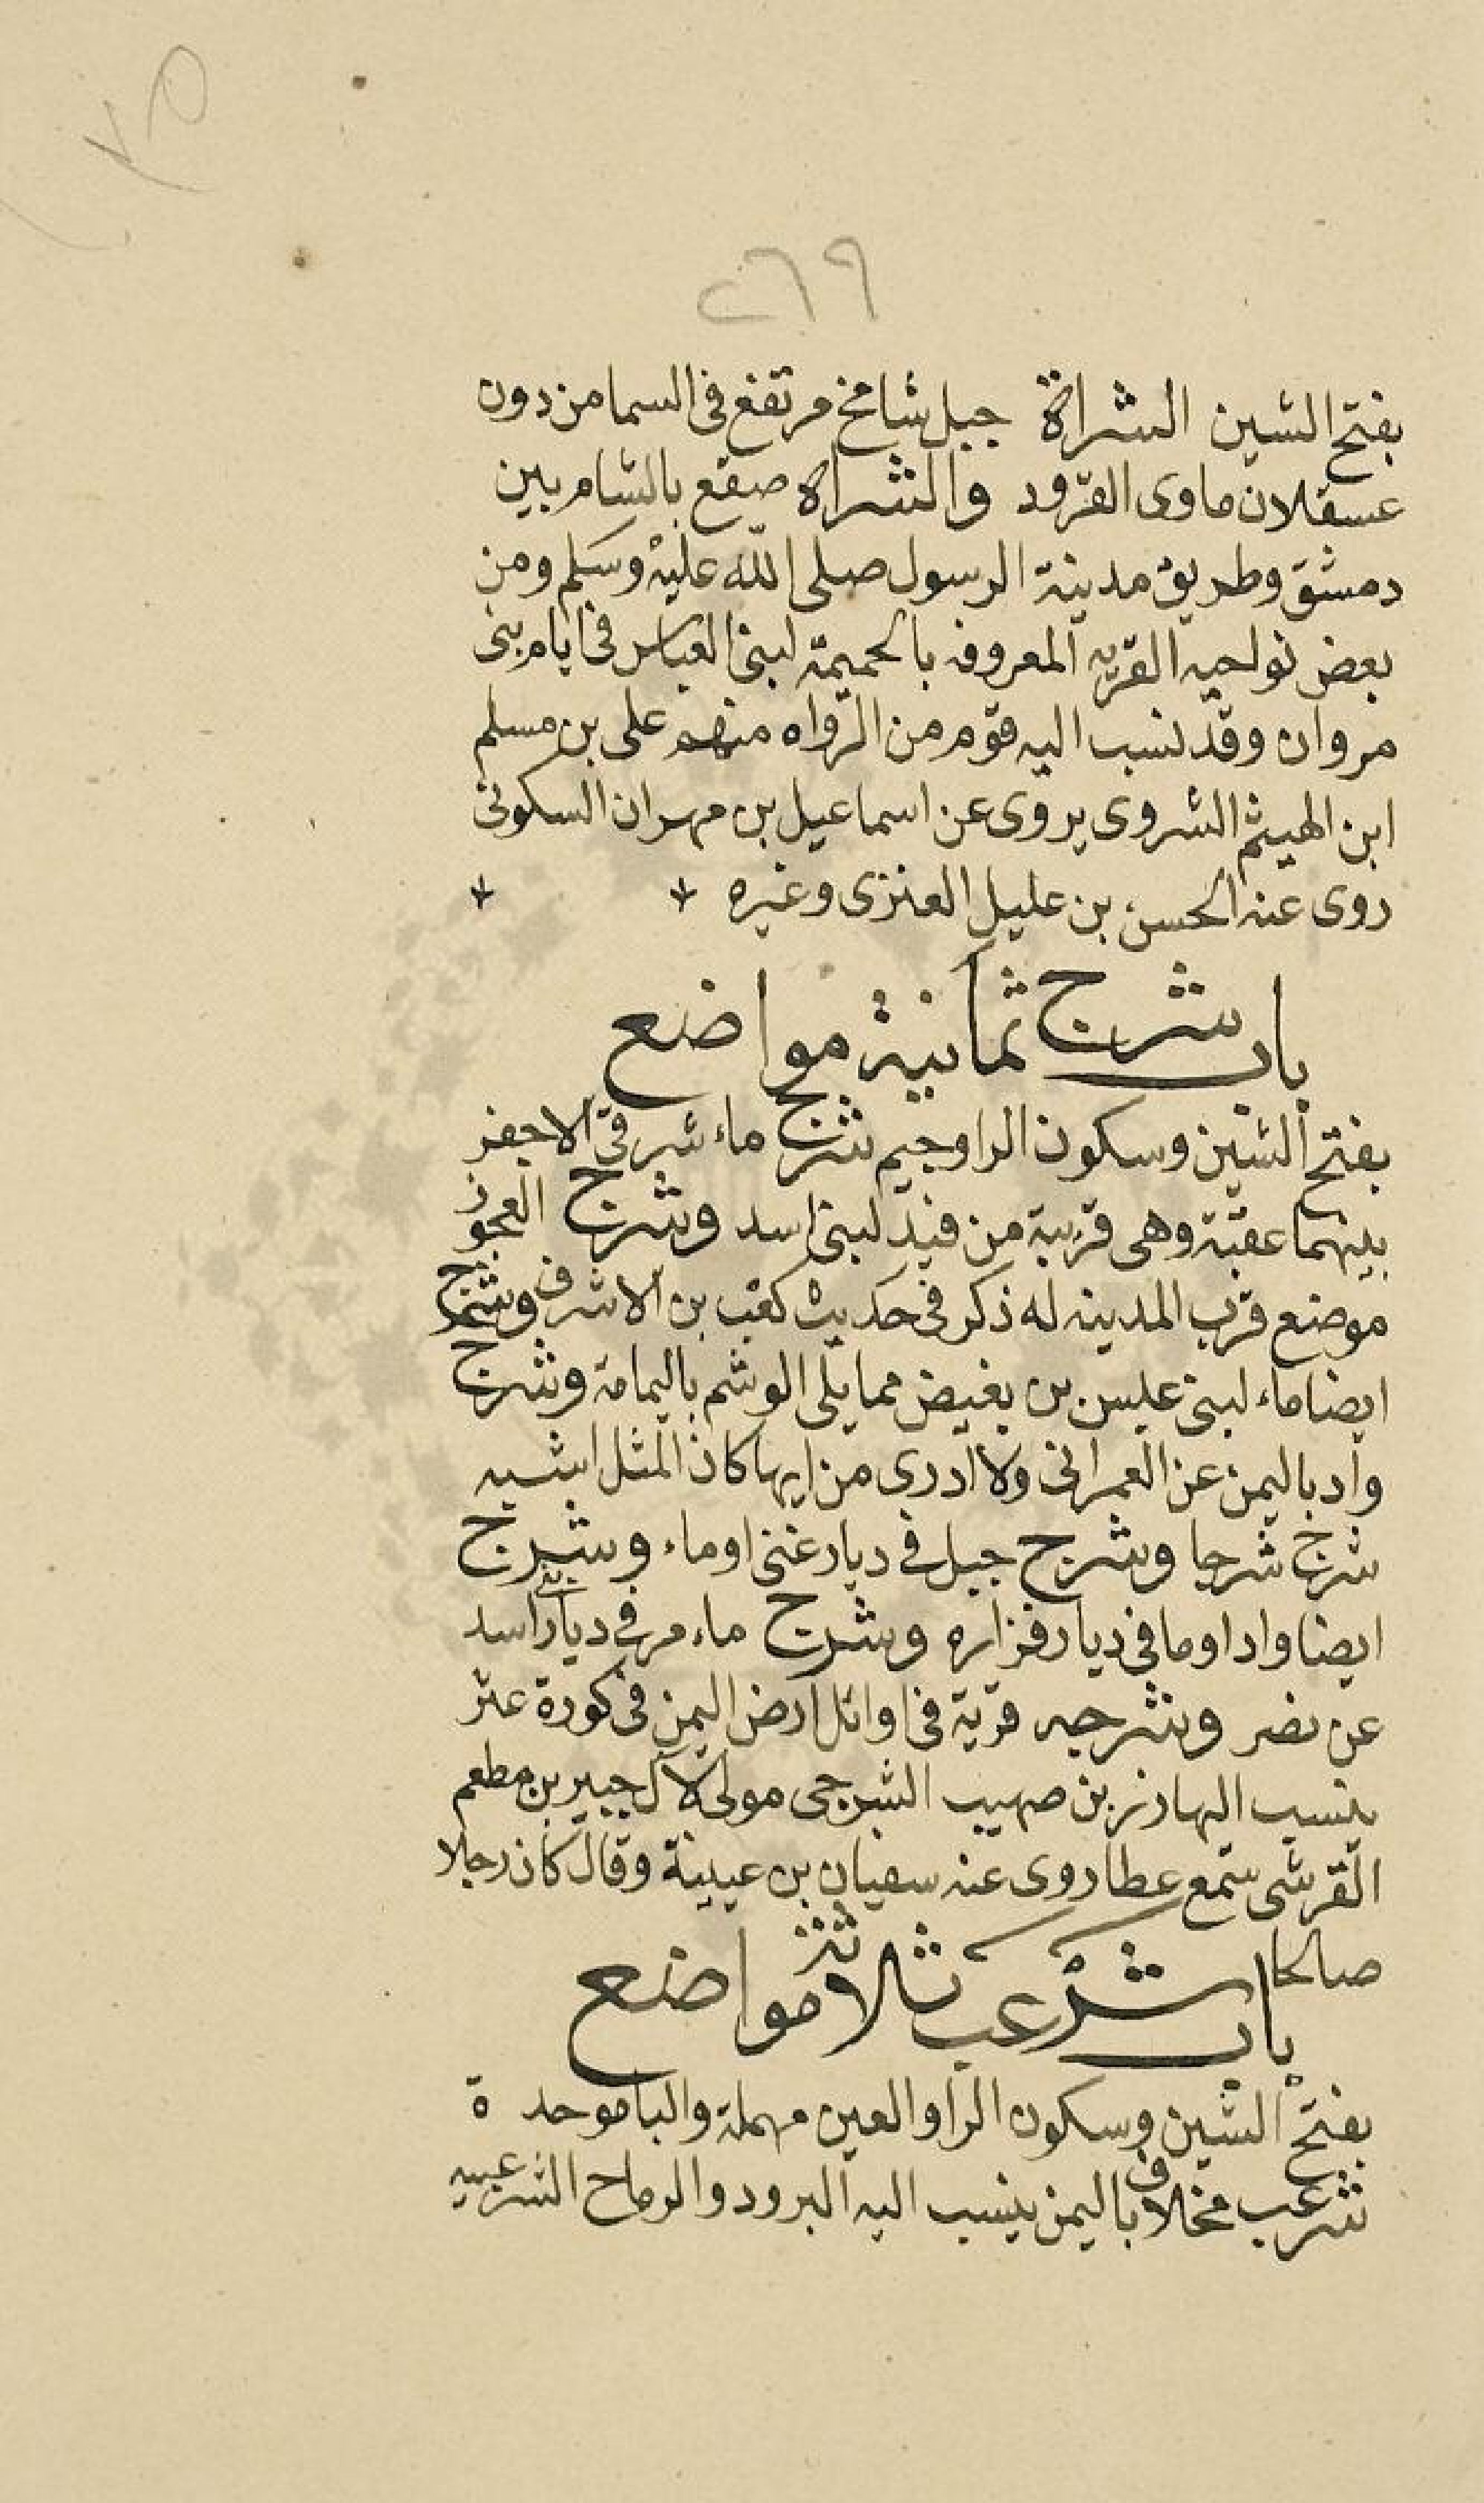 ٢٦٩
بفتح الشين الشراة جبل شامخ مرتفع فى السما من دون
عسقلان ماوى القرود والشراه صقع بالشام بين
دمشق وطريق مدينة الرسول صلى الله عليه وسلم ومن
بعض نواحيه القريه المعروفه بالحميمة لبنى العباس فى ايام بنى
مروان وقد نسب اليه قوم من الرواه منهم على بن مسلم
ابن الهيثم الشروى يروى عن اسماعيل بن مهران السكونى
روى عنه الحسن بن عليل العنزى وغيره
باب شرج ثمانية مواضع
بفتح الشين وسكون الرا وجيم شرج ماء شرقى الاجفر
بينهما عقبة وهى قريبة من فيد لبنى اسد وشرج العجوز
موضع قرب المدينه له ذكر فى حديث كعب بن الاشرف وشرج
ايضا ماء لبنى عبس بن بغيض مما يلى الوشم باليمامة وشرج
واد باليمن عن العمرانى ولا ادرى من ايها كان المثل اشبه
شرج شرجا وشرج جبل فى ديار غنى او ماء وشرج
ايضا واد او ما فى ديار فزاره وشرج ماء مر فى ديار بنى اسد
عن نصر وشرجه قرية فى اوائل ارض اليمن فى كورة عثر
ينسب اليها رزبن صهيب الشرجى مولى لآل جبير بن مطعم
القرشى سمع عطا روى عنه سفيان بن عيينة وقال كان رجلا
صالحا
باب شرعب ثلاثة مواضع
بفتح الشين وسكون الرا والعين مهملة والبا موحدة
شرعب مخلاف باليمن ينسب اليه البرود والرماح الشرعبيه